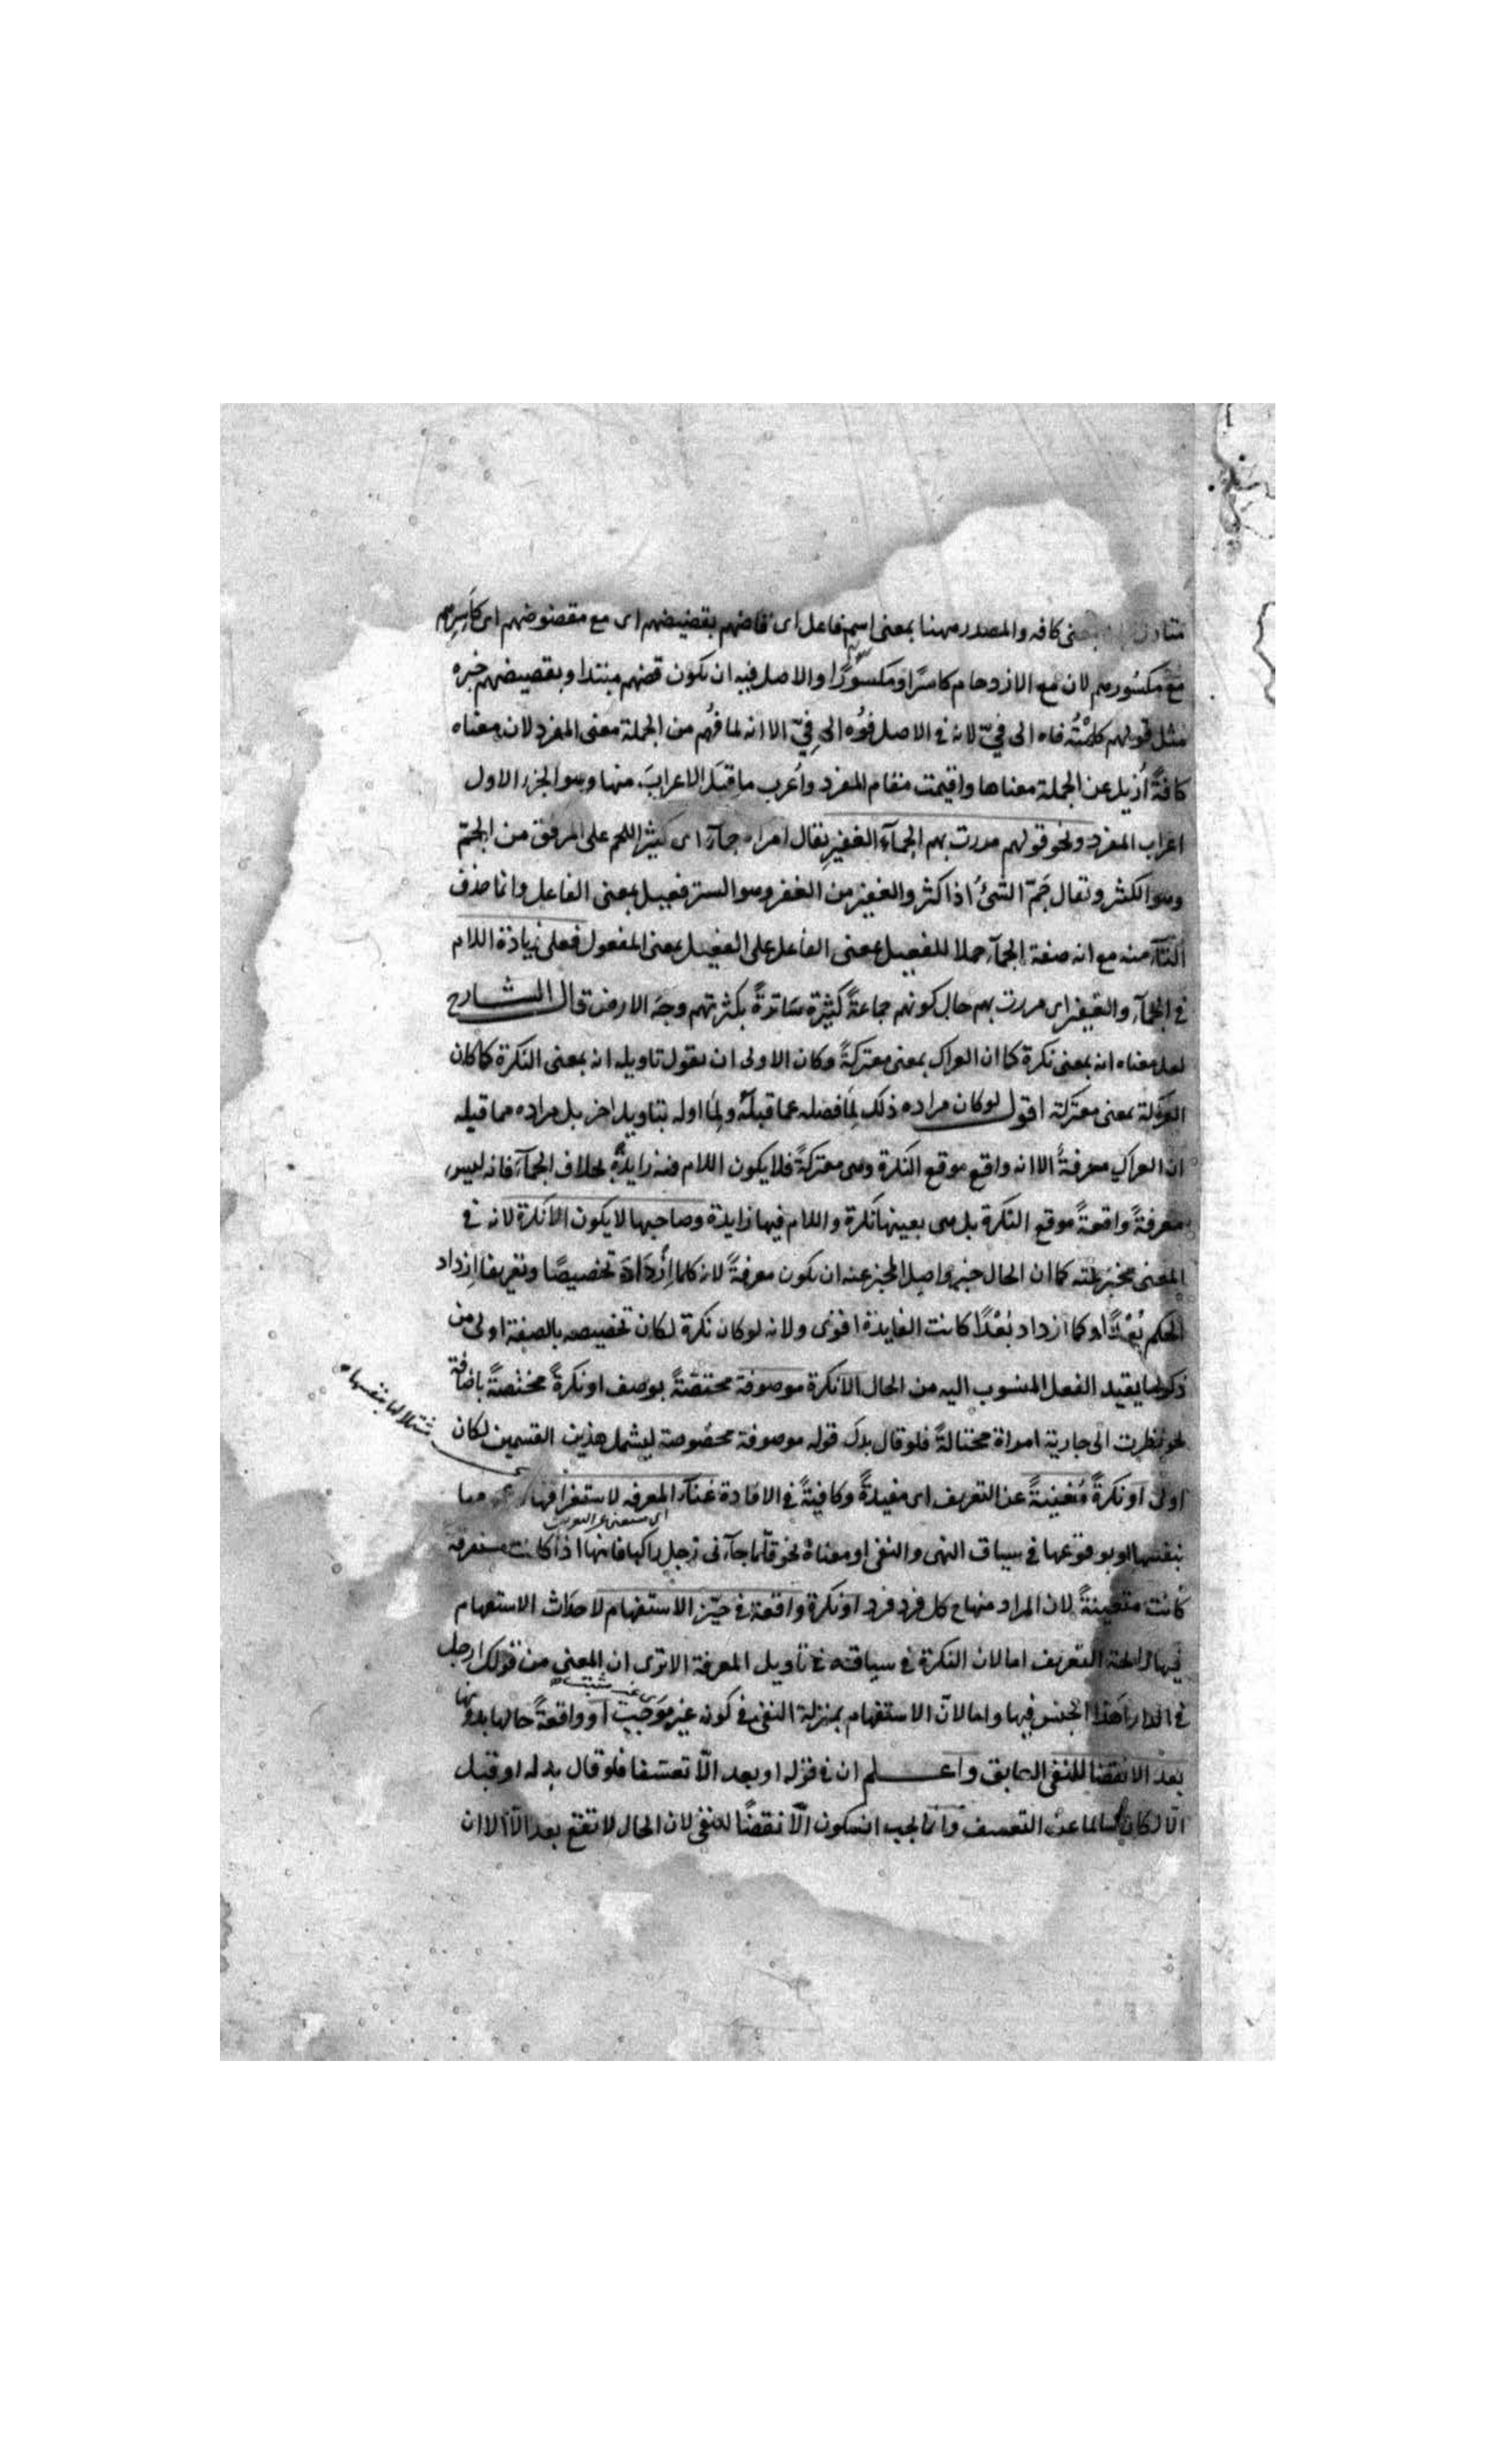 كافه والمصدر ههنا بمعنى اسم فاعل اى قاضهم بقضيضهم اى مع مقضوضهم اى كاسرهم
مع مكسورهم لان مع الازدحام كاسرًا ومكسورًا والاصل فيه ان يكون قضهم مبتدا وبقضيضهم خبره
مثل قولهم كلمتُه فاه الى فىّ لانه فى الاصل فوُه الى فِىّ الا انه لما فُهم من الجملة معنى المفرد لان معناه
كافةً اُزيل عن الجملة معناها واقيمت مقام المفرد واُعرب ما قبل الاعرابَ منها وهو الجزء الاول
اعراب المفرد ونحو قولهم مررت بهم الجمآء الغفير يقال امراه جمآء اى كثير اللحم على المرفق من الجمّ
وهو الكثر وتقال جَمّ الشئُ اذا كثر والغفير من الغفر وهو الستر فعيل بمعنى الفاعل وانما حذف
التآء منه مع انه صفة الجمآء حملا للفعيل بمعنى الفاعل على الفعيل بمعنى المفعول فعلى زيادة اللام
فى الجمآء والغفير اى مررت بهم حال كونهم جماعةً كثيرة ساترةً بكثرتهم وجه الارض قال الشارح
لعل معناه انه بمعنى نكرة كما ان العراك بمعنى معتركةً وكان الاولى ان يقول تاويله انه بمعنى النكرة كما كان
بمعنى معتركة اقول لو كان مراده ذلك لِمَا فصله عما قبله ولِمَا اوله بتاويل اخر بل مراده مما قبله
ان العراك معرفةً الا انه واقع موقع النكرة وهى معتركةً فلا يكون اللام فيه زايدةً بخلاف الجمآء فانه ليس
معرفةً واقعةً موقع النكرة بل هى بعينها نكرة واللام فيها زايدة وصاحبها لا يكون الا نكرة لانه فى
المعنى مخبر عنه كما ان الحال خبر واصل المخبر عنه ان يكون معرفةً لانه كلما اِزْدَادَ تخصيصًا وتعريفا اِزداد
الحكم بُعْدًا وكما ازداد بُعْدًا كانت الفايدة اقوى ولانه لو كان نكرة لكان تخصيصه بالصفة اولى من
ذكر ما يقيد الفعل المنسوب اليه من الحال الا نكرة موصوفة مختصّةً بوصف او نكرةً مختصةً باضافة
نحو نظرت الى جارية امراة مختالةً فلو قال بدل قوله موصوفة مخصوصة ليشمل هذين القسمين لكان
اولى او نكرةً مُغنيةً عن التعريف اى مفيدةً وكافيةً فى الافادة غنآء المعرفه لاستغراقها
بنفسها او بوقوعها فى سياق النهى والنفى او معناهُ نحو قلّما جآءنى رجل راكبا فانها اذا كانت مستغرقه
كانت متعينةً لان المراد منها ح كل فرد فرد او نكرة واقعة فى حيّز الاستفهام لاحداث الاستفهام
فيها رايحة التعريف اما لان النكرة فى سياقته فى تأويل المعرفة الا ترى ان المعنى من قولك ارجل
فى الدار اَهذا الجنس فيها واما لانّ الاستفهام بمنزلة النفى فى كونه غير موجب او واقعةً حالها بدونها
بعد الا نقضا للنفى السابق واعلم ان فى قوله او بعد الّا تعسّفا فلو قال بدله او قبل
الّا لكان سالما عن التعسف وانما يجب ان يكون الّا نقضًا للنفى لان الحال لا تقع بعد الّا الا ان